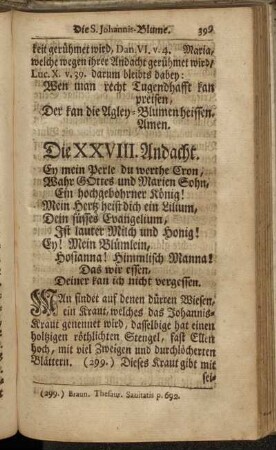 Die S. Johannis-Blume. 39
keit gerühmet wird, Dan. VI. v. 4. Maria,
welche wegen ihrer Andacht gerühmet wird,
Luc. X. v. 39. darum bleibts dabey:
Wen man recht Tugendhafft kan
preisen,
Der kan die Agley-Blumen heissen,
Amen.
Die XXVIII. Andacht.
Ey mein Perle du werthe Cron,
Wahr GOttes und Marien Sohn,
Ein hochgebohrner König!
Mein Hertz heist dich ein Lilium,
Dein süsses Evangelium,
Ist lauter Milch und Honig!
Ey! Mein Blümlein,
Hosianna! Himmlisch Manna!
Das wir essen,
Deiner kan ich nicht vergessen.
MAn findet auf denen dürren Wiesen,
ein Kraut, welches das Johannis-
Kraut genennet wird, dasselbige hat einen
holtzigen röthlichten Stengel, fast Ellen
hoch, mit viel Zweigen und durchlöcherten
Blättern. (299.) Dieses Kraut gibt mit
sei-
(299.) Braun. Thesaur. Sanitatis p. 692.